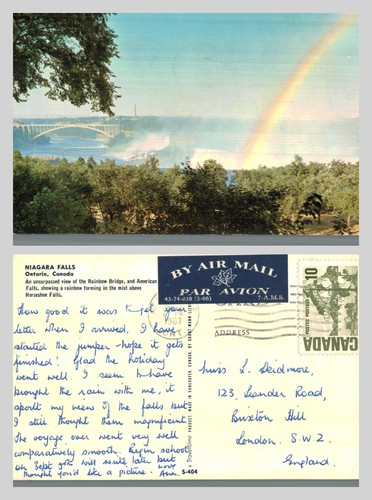 NIAGARA FALLS
Ontario, Canada
An unsurpassed view of the Rainbow Bridge, and American
Falls, showing a rainbow forming in the mist above
Horseshoe Falls.
How good it was to get your
letter when I arrived, I have
started the jumper - hope it gets
finished! Glad the holiday
went well. I seem to have
brought the rain with me, it
spoilt my views of the falls but
I still thought them magnificent
The voyage over went very well
comparatively smooth. Begin school
on Sept 5th will write later but
thought you'd like a picture. Love
Ann.
S-404
BY AIR MAIL
PAR AVION
43-74-038 (3-66)
7-A.M.S.
ADDRESS
10
CANADA
Miss L. Skidmore,
123, Leander Road,
Brixton Hill
London. S.W.2.
England.